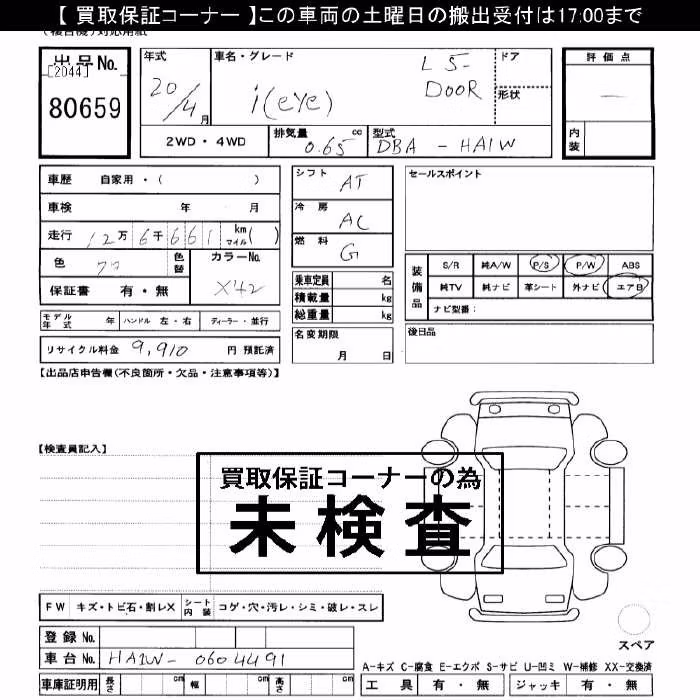 【 買取保証コーナー 】この車両の土曜日の搬出受付は17:00まで
出品No.
[2044]
80659
年式
20/4月
車名・グレード
i(eye)
L 5-DOOR
ドア
形状
評価点
—
内装
2WD・4WD
排気量 0.65 cc
型式 DBA - HA1W
車歴 自家用・( )
車検 年 月
走行 12万6千661 km マイル( )
色
色替
カラーNo.
X42
保証書 有・無
モデル年式 年 ハンドル 左・右 ディーラー・並行
リサイクル料金 9,910 円 預託済
シフト AT
冷房 AC
燃料 G
乗車定員 名
積載量 kg
総重量 kg
名変期限
月 日
セールスポイント
装備品
S/R 純A/W P/S P/W ABS
純TV 純ナビ 革シート 外ナビ エアB
ナビ型番:
後日品
【出品店申告欄(不良箇所・欠品・注意事項等)】
【検査員記入】
買取保証コーナーの為
未検査
FW キズ・トビ石・割レX シート内装 コゲ・穴・汚レ・シミ・破レ・スレ
登録No.
車台No. HA1W-0604491
車庫証明用 長さ cm 幅 cm 高さ cm
スペア
A-キズ C-腐食 E-エクボ S-サビ U-凹ミ W-補修 XX-交換済
工具 有・無 ジャッキ 有・無